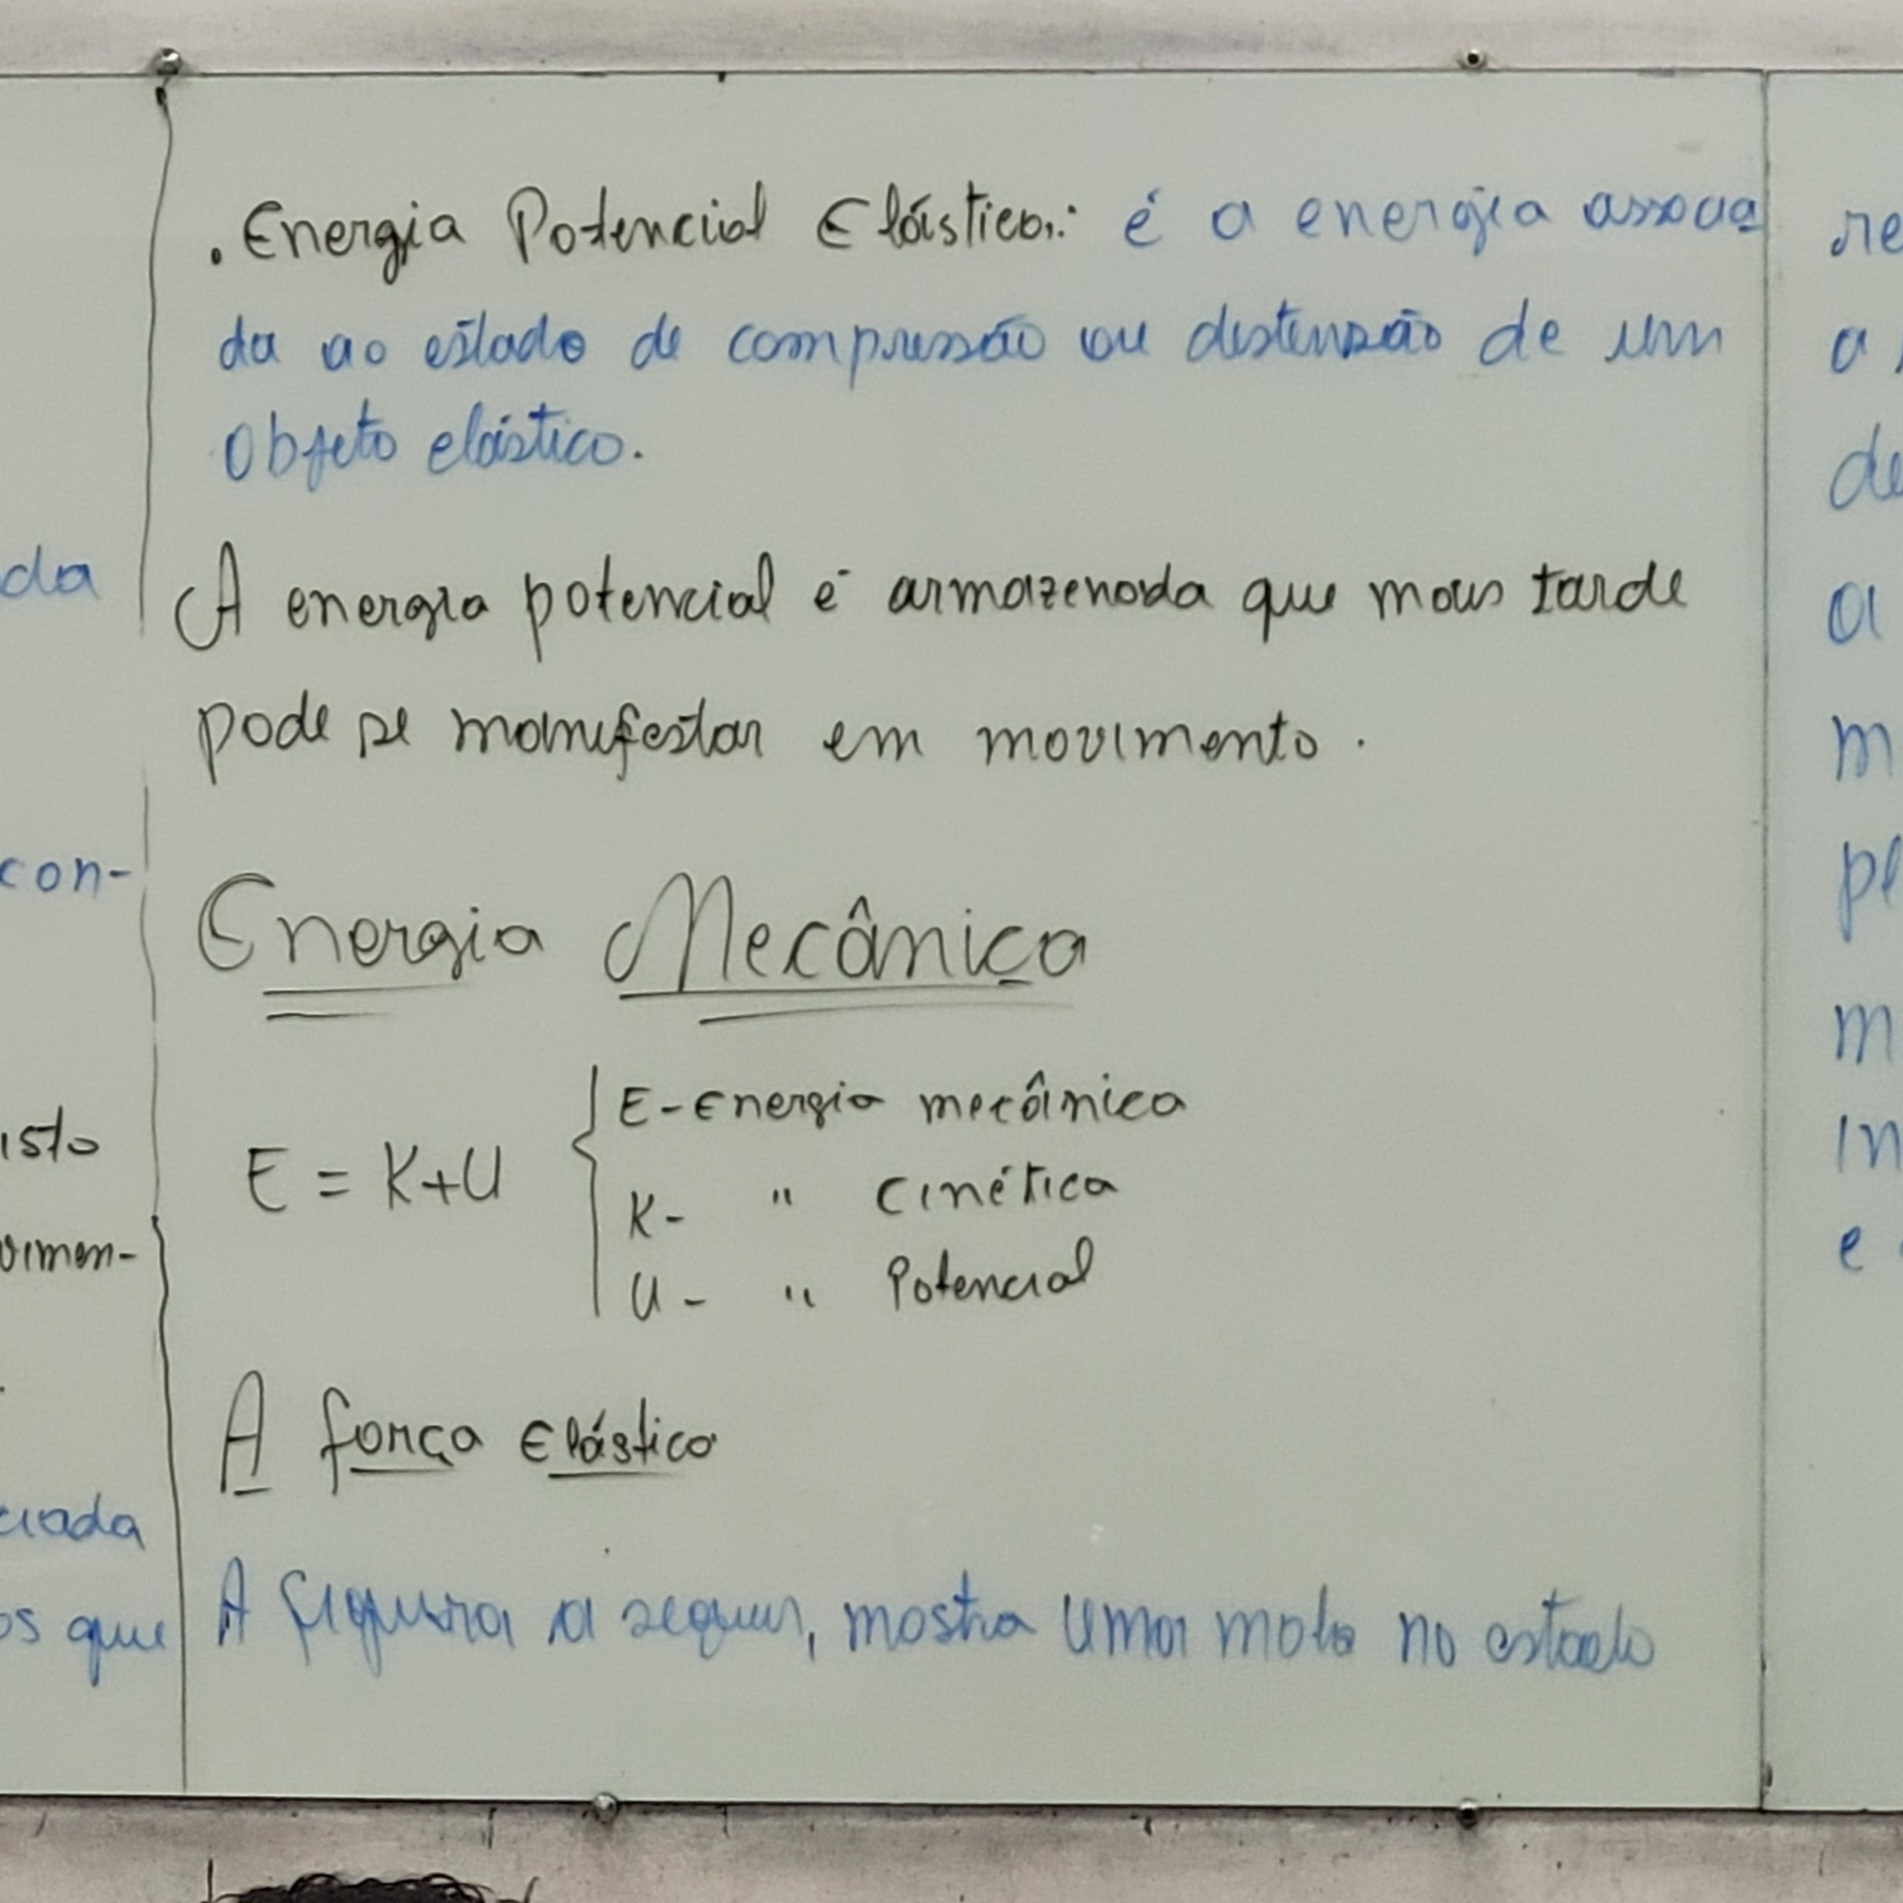 . Energia Potencial Elástica: é a energia associa
da ao estado de compressão ou distensão de um
Objeto elástico.
A energia potencial é armazenada que mais tarde
pode se manifestar em movimento.
Energia Mecânica
E = K+U
E - Energia mecânica
K - " Cinética
U - " Potencial
A força Elástica
A figura a seguir, mostra uma mola no estado
da
con-
isto
vimen-
ciada
os que
re
a
de
a
m
pe
m
in
e